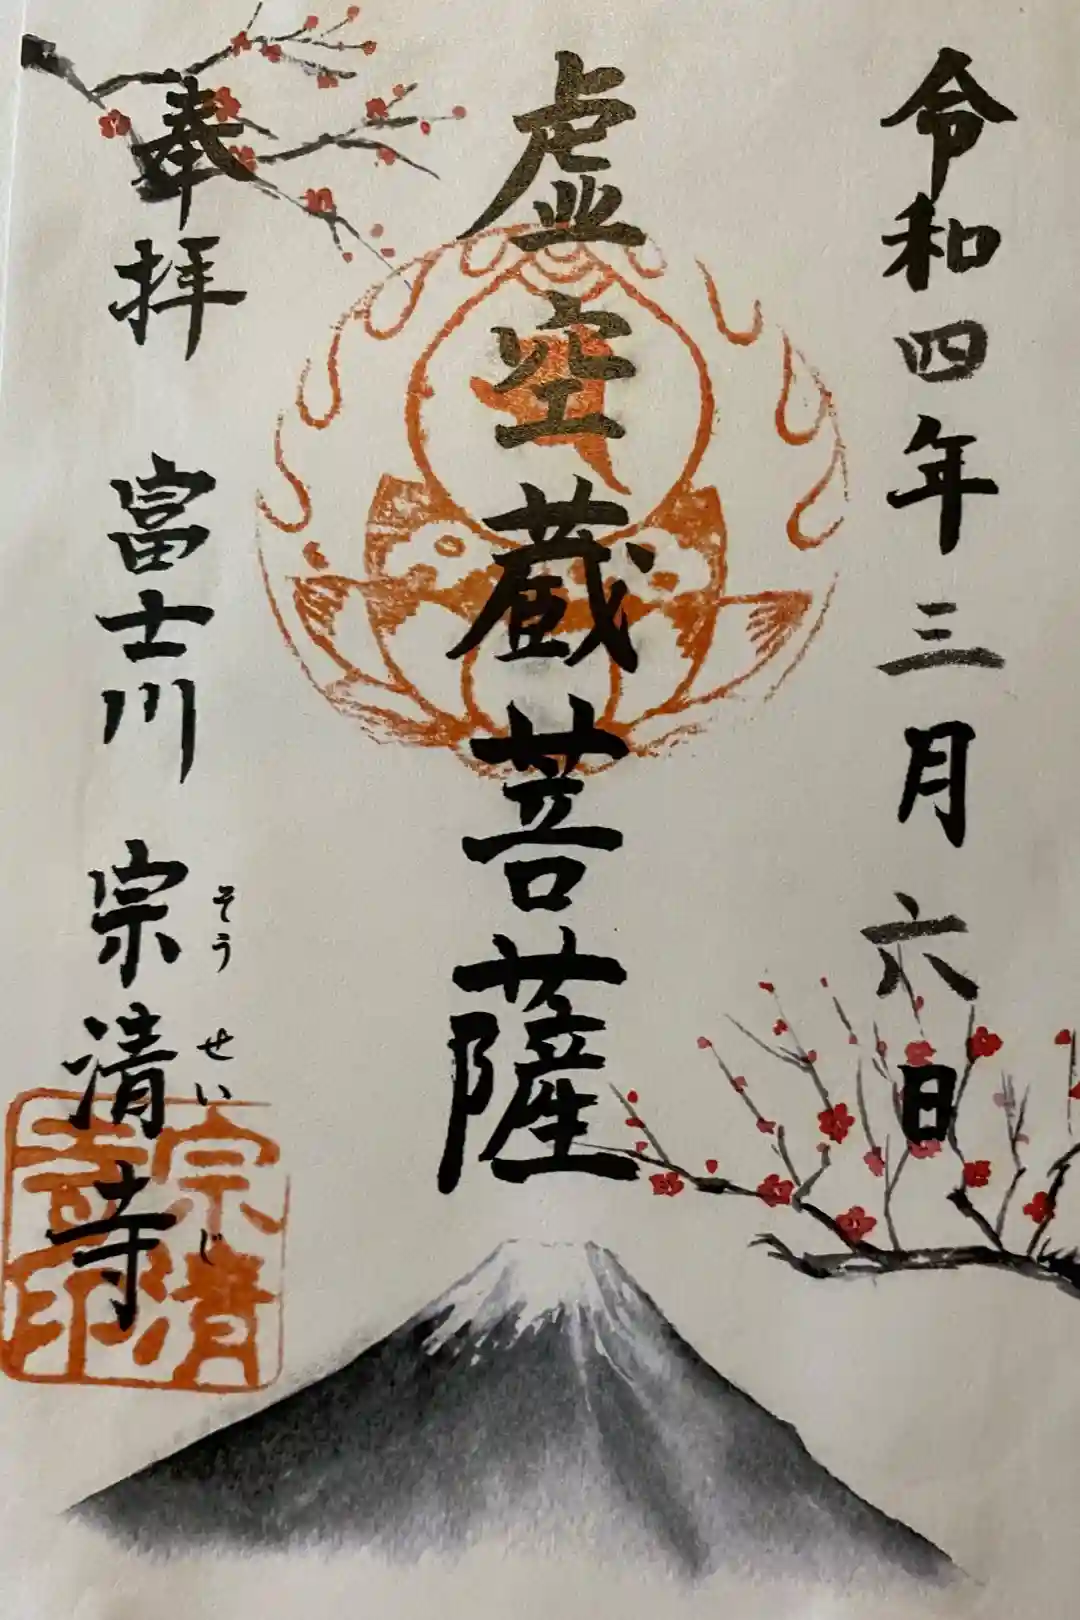 令和四年三月六日
虚空蔵菩薩
奉拝
富士川 宗清寺
そうせいじ
宗清寺印